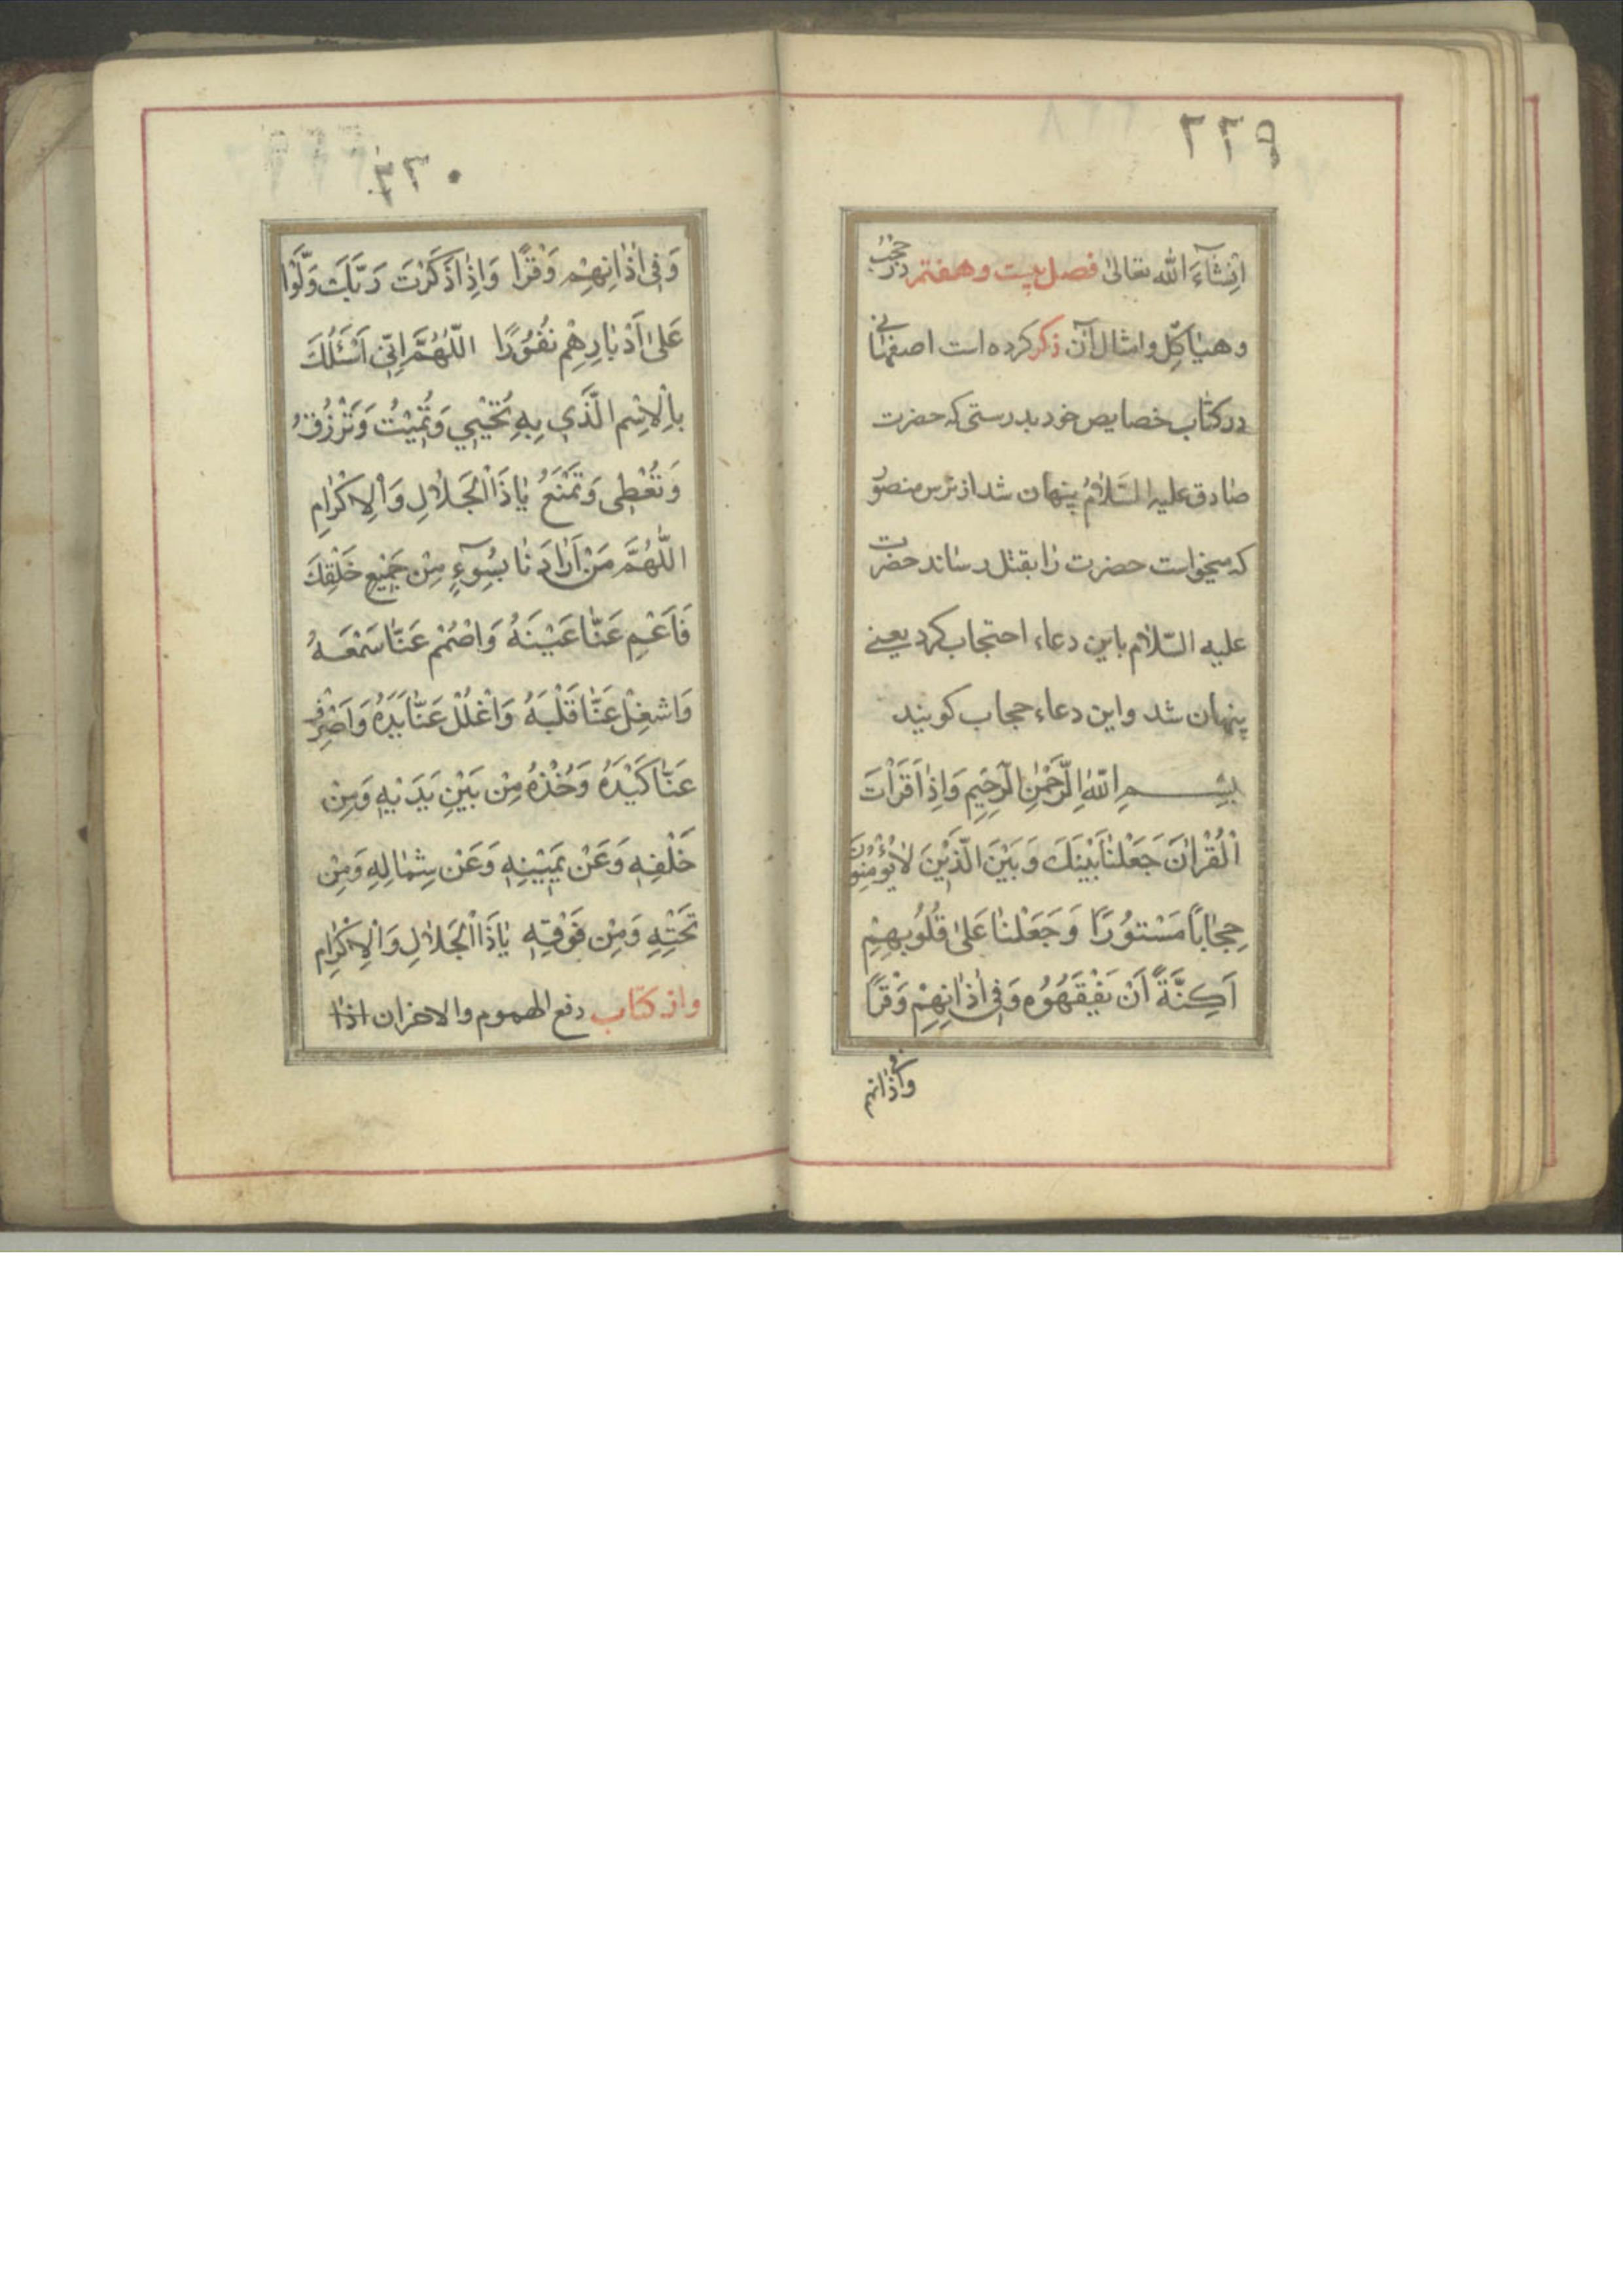 ٢٢٩
اِنْشٰآءَ اللّٰه تعالىٰ فصل بیست وهفتم در حُجُبْ
و هیٰاكِل وامثال آن ذكر كرده است اصفهٰانی
در كتٰاب خصایص خود بدرستی كه حضرت
صٰادق علیه السَّلٰامُ پنهان شد از ترس منصوٓر
كه میخواست حضرت رٰا بقتل رسٰاند حضرت
علیه السّلٰام باین دعاء احتجاب كرد یعنے
پنهان شد و این دعاء حجاب كویند
بِسْمِ اللّٰهِ الرَّحْمٰنِ الرَّحٖیمِ وَاِذٰا قَرَأْتَ
اْلقُرْاٰنَ جَعَلْنٰا بَیْنَكَ وَ بَیْنَ الَّذٖیْنَ لٰا یُؤْمِنُوْنَ
حِجٰابًا مَسْتُوْرًا وَ جَعَلْنٰا عَلىٰ قُلُوْبِهِمْ
اَكِنَّةً اَنْ یَفْقَهُوْهُ وَ فٖی اٰذٰانِهِمْ وَقْرًا
وفی اٰذٰانهم
٢٣٠
وَ فٖی اٰذٰانِهِمْ وَقْرًا وَاِذٰا ذَكَرْتَ رَبَّكَ وَلَّوْا
عَلىٰ اَدْبٰارِهِمْ نُفُوْرًا اللّٰهُمَّ اِنّٖی اَسْئَلُكَ
بِاْلاِسْمِ الَّذٖی بِهٖ تُحْیٖی وَ تُمٖیْتُ وَ تَرْزُقُ
وَ تُعْطٖی وَ تَمْنَعُ یٰا ذَاْالجَلٰالِ وَاْلاِكْرٰامِ
اللّٰهُمَّ مَنْ اَرٰادَ نٰا بِسُوٓءٍ مِنْ جَمٖیْعِ خَلْقِكَ
فَاَعْمِ عَنّٰا عَیْنَهُ وَاصْمُمْ عَنّٰا سَمْعَهُ
وَاشْغِلْ عَنّٰا قَلْبَهُ وَاغْلُلْ عَنّٰا یَدَهُ وَاَصْرِفْ
عَنّٰا كَیْدَهُ وَخُذْهُ مِنْ بَیْنِ یَدَیْهِ وَ مِنْ
خَلْفِهٖ وَعَنْ یَمٖیْنِهٖ وَعَنْ شِمٰالِهٖ وَ مِنْ
تَحْتِهٖ وَ مِنْ فَوْقِهٖ یٰا ذَاْالجَلٰالِ وَاْلاِكْرٰامِ
واز كتٰاب دفع الهموم والاحزان اذٰا